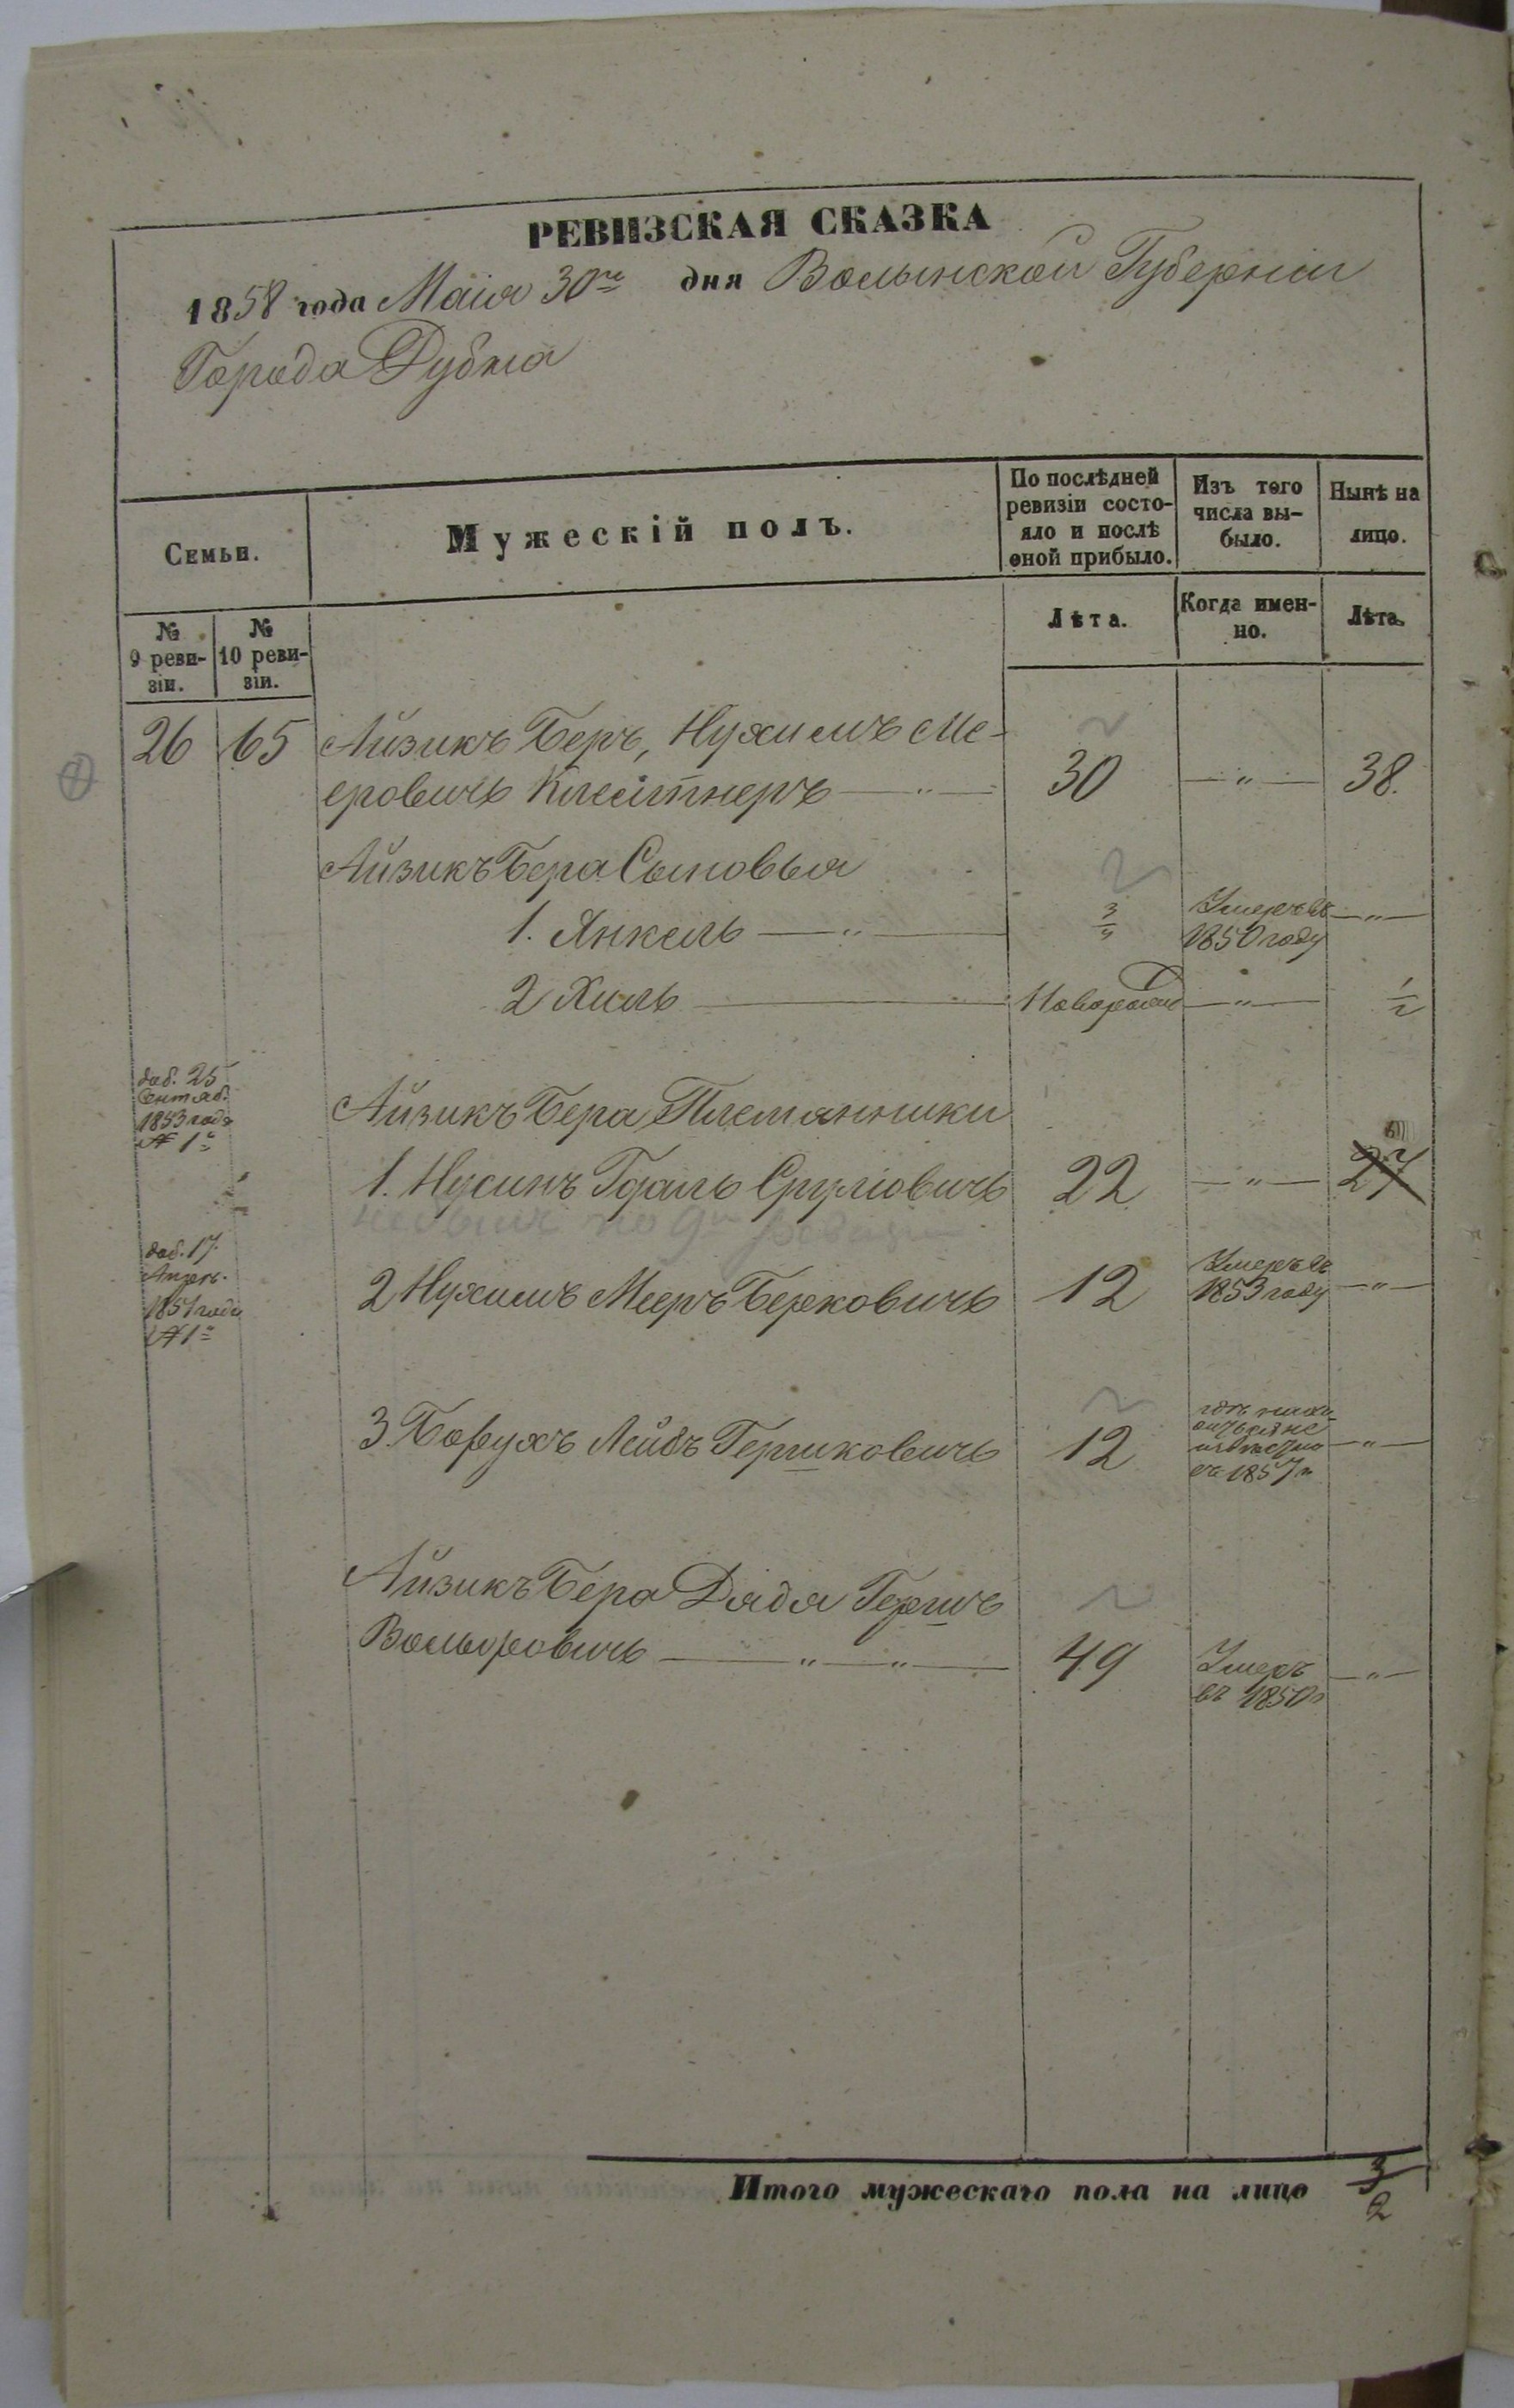 РЕВИЗСКАЯ СКАЗКА
1858 года Маія 30го дня Волынской Губерніи
Города Дубна
Семьи.
Мужескій полъ.
По послѣдней ревизіи состо-
яло и послѣ
оной прибыло.
Изъ того
числа вы-
было.
Нынѣ на
лицо.
№
9 реви-
зіи.
№
10 реви-
зіи.
Лѣта.
Когда имен-
но.
Лѣта.
26 65 Айзикъ Беръ, Нухимъ Ме-
еровичъ Клейтнеръ — „ — 30 — „ — 38.
Айзикъ Бера Сыновья
1. Янкель — „ — 3/4 Умеръ въ — „ —
1850 году
2 Хиль — Новорожд — „ — 1/2
доб. 25
Сентяб.
1853 года
№ 1й
Айзикъ Бера Племянники
1. Нусинъ Гдаль Срулiовичъ 22 — „ — 27
не былъ по 9й ревизіи
доб. 17.
Апрел.
1851 года
№ 1й
2 Нухимъ Мееръ Берковичъ 12 Умеръ въ — „ —
1853 году
3. Борухъ Лейбъ Гершковичъ 12 — „ —
не
извѣстно
съ 1857 г
Айзикъ Бера Дядя Гершъ
Вольфовичъ — „ — „ — 49 Умеръ — „ —
въ 1850 г
Итого мужескаго пола на лицо 3
2